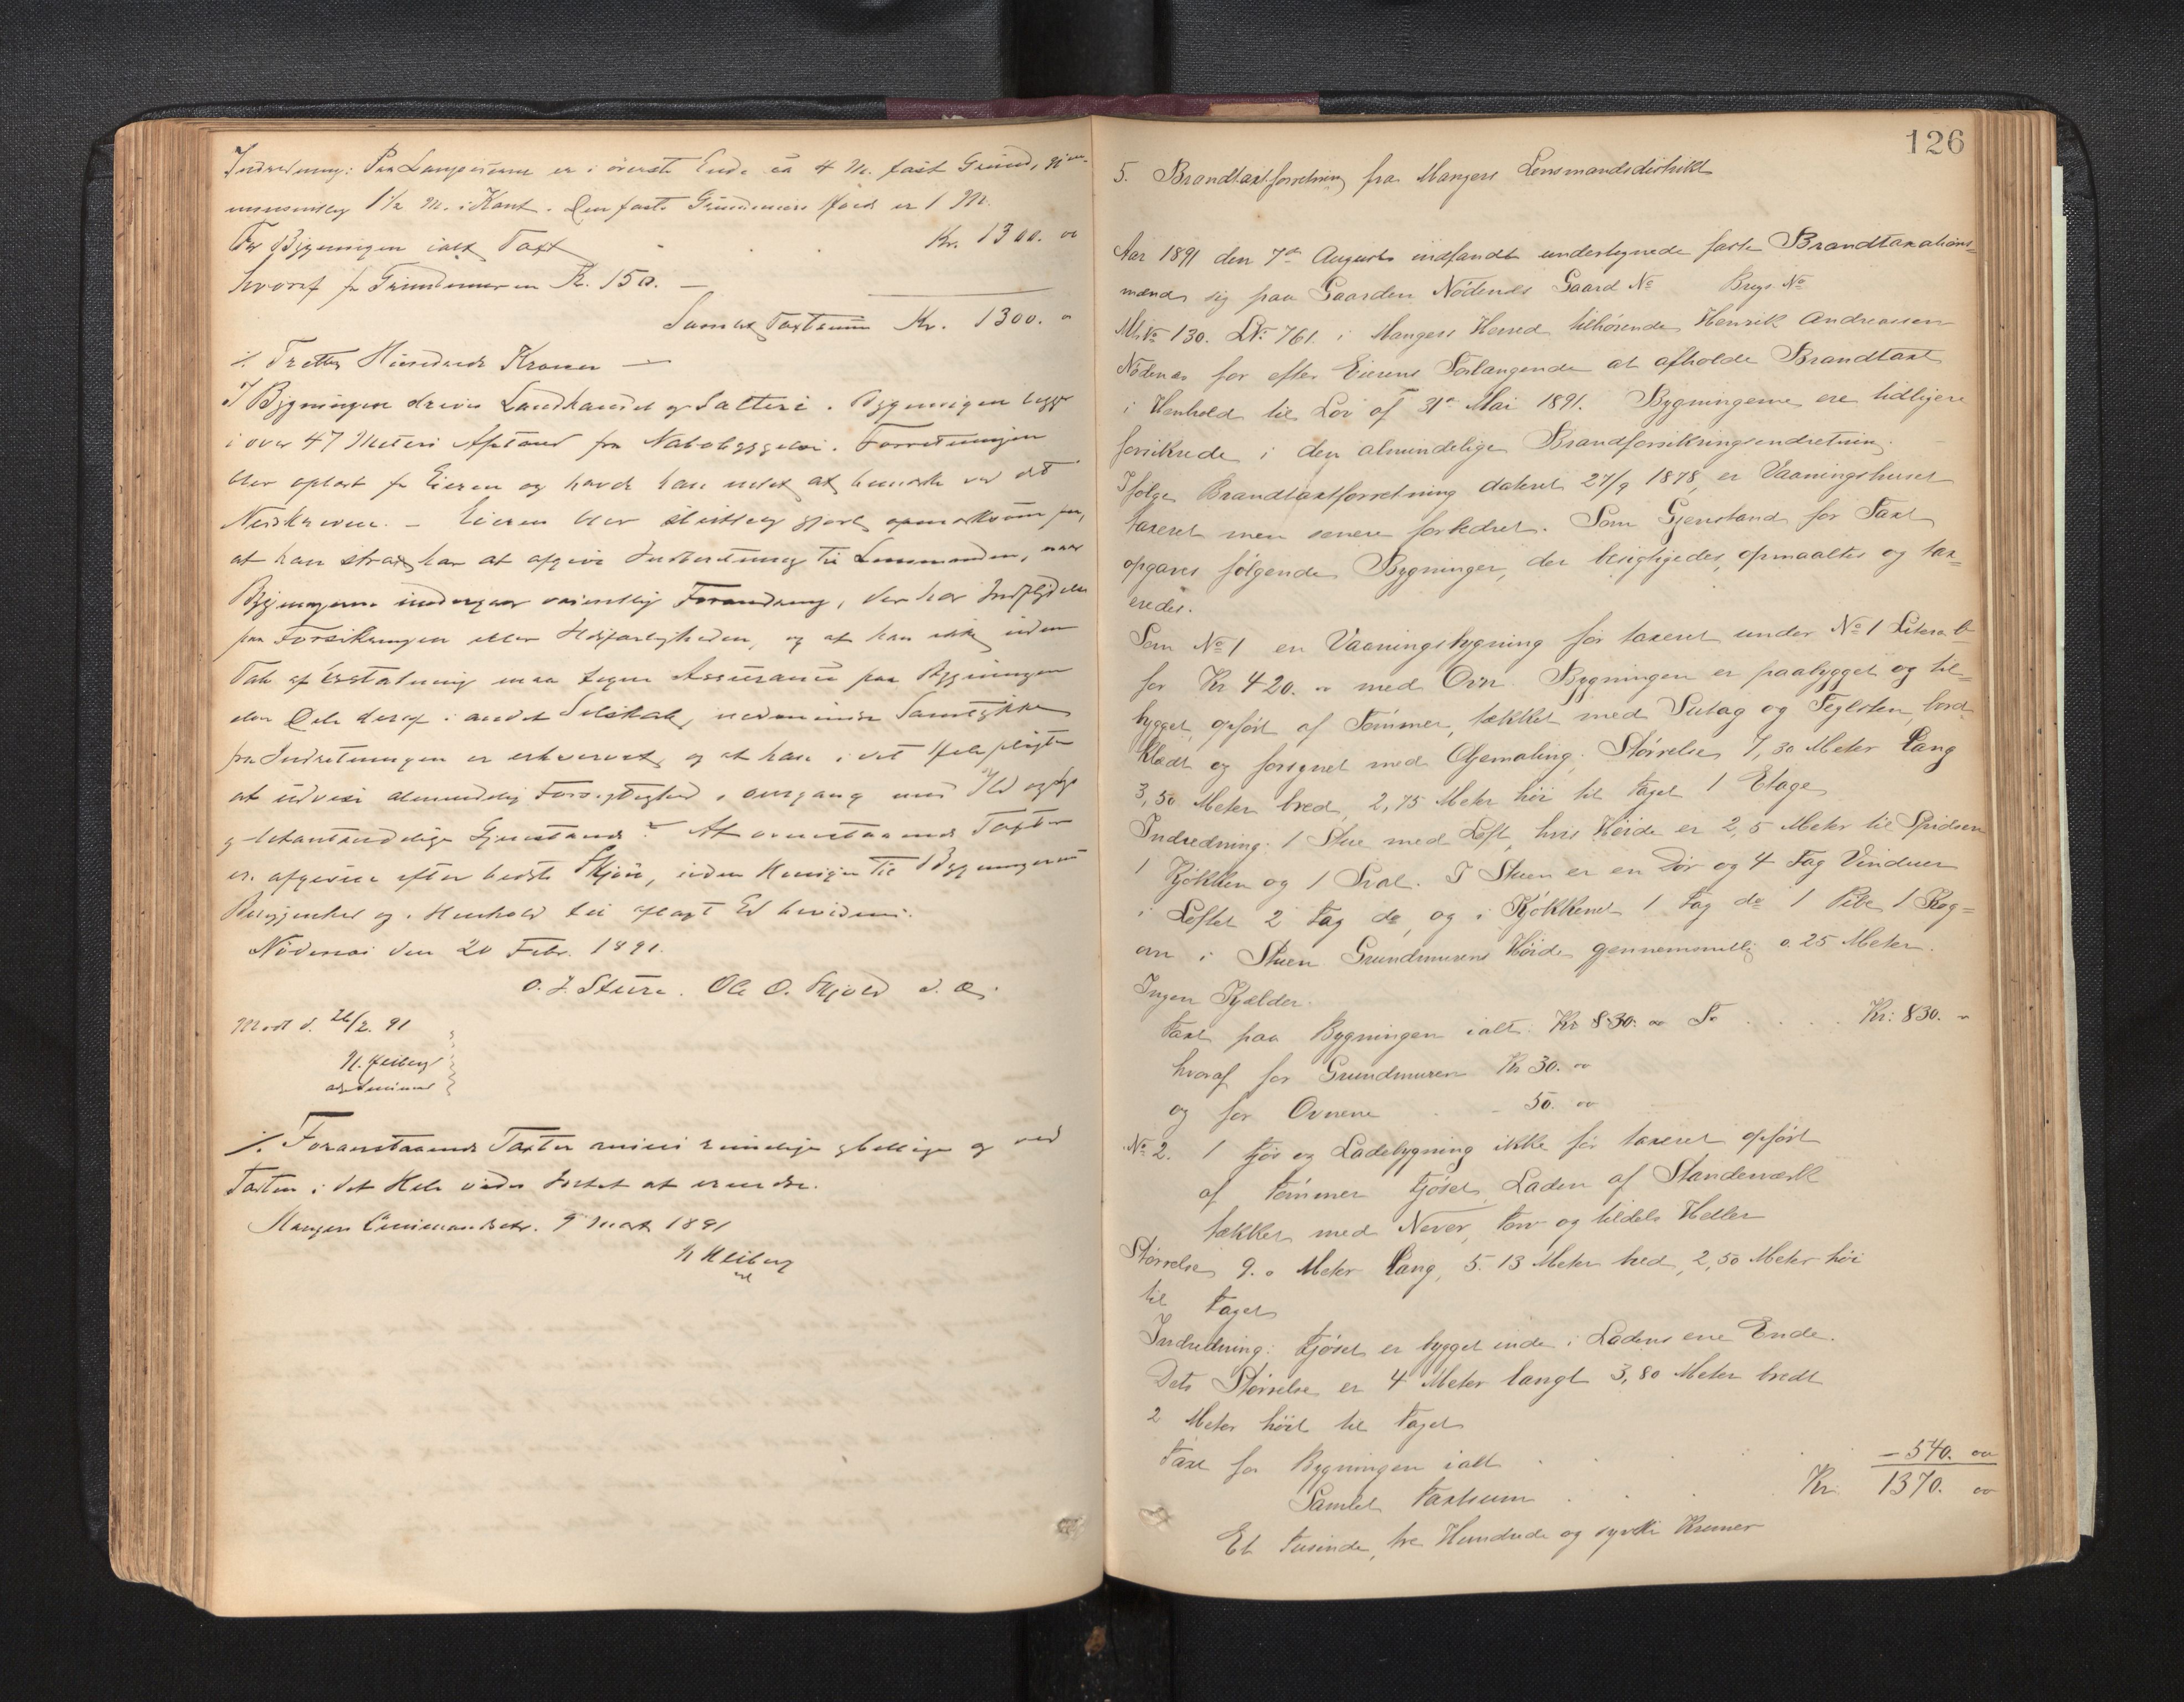 Indredning: Paa Langsiderne er i øverste Ende ca 4 M. fast Grund, gjen-
nemsnitlig 1½ M. i Kant. Den faste Grundmurs Høide er 1 M.
For Bygningen ialt Taxt Kr. 1300. 00
hvoraf for Grundmuren Kr. 150. —
Samlet Taxtsum Kr. 1300. 00
/. Tretten Hundrede Kroner —
I Bygningen drives Landhandel og Salteri. Bygningen ligger
i over 47 Meters Afstand fra Nabobyggelse. Forretningen
blev oplæst for Eieren og havde han intet at bemærke ved det
Nedskrevne. — Eieren blev skriftlig gjort opmærksom paa,
at han strax har at afgive Indberetning til Lensmanden, naar
Bygningerne undergaar væsentlig Forandring, der har Indflydelse
paa Forsikringen eller Ildsfarligheden, og at han ikke uden
Tab af Erstatning maa tegne Assurance paa Bygningen
eller Dele deraf i andet Selskab, medmindre Samtykke
fra Indretningen er erhvervet, og at han i det Hele pligter
at udvise almindelig Forsigtighed i omgang med Ild og Lys
og letantændelige Gjenstande. — At ovenstaaende Taxter
er afgivne efter bedste Skjøn, uden Hensyn til Bygningernes
Beliggenhed og i Henhold til aflagt Ed bevidnes.
Nødenæs den 20 Febr. 1891.
O. J. Sture. Ole O. Skjold
Modt d. 26/2. 91
N. Heiberg
/. Foranstaaende Taxter ansees rimelige og billige og ved
Taxten i det Hele vides Intet at erindre.
Manger Lensmandsktr. 9 Marts 1891
N Heiberg
126
5. Brandtaxtforretning fra Mangers Lensmandsdistrikt
Aar 1891 den 7de Augusts indfandt undertegnede faste Brandtaxations-
mænd sig paa Gaarden Nødenes Gaard No Brugs No
M. No 130. L No 761. i Mangers Herred tilhørende Henrik Andreassen
Nødenæs for efter Eierens Forlangende at afholde Brandtaxt
i Henhold til Lov af 31te Mai 1891. Bygningerne ere tidligere
forsikrede i den almindelige Brandforsikringsindretning.
Ifølge Brandtaxtforretning dateret 27/9 1878, er Vaaningshuset
taxeret men senere forbedret. Som Gjenstand for Taxt
opgaves følgende Bygninger, der besigtigedes, opmaaltes og tax-
eredes.
Som No 1 en Vaaningsbygning før taxeret under No 1 Litera b
for Kr 420. 00 med Ovn. Bygningen er paabygget og til-
bygget, opført af Tømmer, tækket med Sutag og Teglsten, bord-
klædt og forsynet med Oljemaling; Størrelse 7,30 Meter Lang
3,50 Meter bred, 2,75 Meter høi til taget 1 Etage
Indredning: 1 Stue med Loft, hvis Høide er 2,5 Meter til Spidsen
1 Kjøkken og 1 Sval. I Stuen er en Dør og 4 Fag Vinduer
i Loftet 2 fag do, og i Kjøkkenet 1 fag do 1 Pibe 1 Kog-
ovn i Stuen Grundmurens Høide gennemsnitlig 0.25 Meter.
Ingen Kjælder.
Taxt paa Bygningen ialt. Kr 830. 00 Kr: 830. 00
hvoraf for Grundmuren Kr 30. 00
og for Ovnene - 50. 00
No 2. 1 Fjøs og Ladebygning ikke før taxeret opført
af Tømmer Fjøset, Laden af Standerværk
tækket med Never, Torv og tildels Heller
Størrelse 9.0 Meter Lang, 5.13 Meter bred, 2,50 Meter høi
til Taget
Indredning: Fjøset er bygget inde i Ladens ene Ende.
Dets Størrelse er 4 Meter langt 3,80 Meter bredt
2 Meter høit til Taget
Taxt for Bygningen ialt - 540. 00
Samlet Taxtsum Kr: 1370. 00
Et Tusinde, tre Hundrede og sytti Kroner